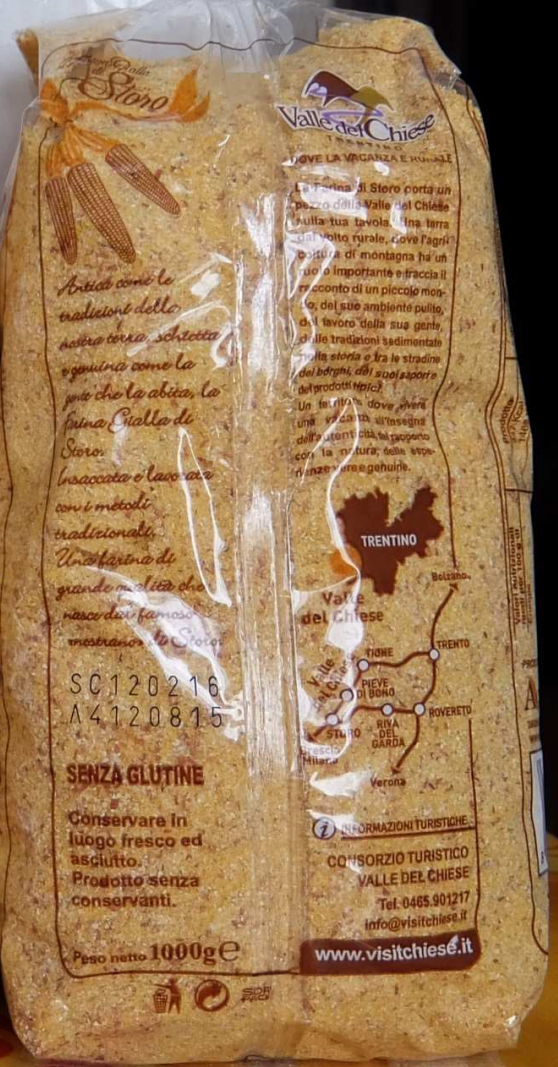 Farina Gialla
di
Storo
Antica come le
tradizioni della
nostra terra, schietta
e genuina come la
gente che la abita, la
farina Gialla di
Storo.
Insaccata e lavorata
con i metodi
tradizionali.
Una farina di
grande qualità che
nasce dal famoso
nostrano di Storo.
SC120216
A4120815
SENZA GLUTINE
Conservare in
luogo fresco ed
asciutto.
Prodotto senza
conservanti.
Peso netto 1000g e
Valle del Chiese
TRENTINO
DOVE LA VACANZA E RURALE
La Farina di Storo porta un
pezzo della Valle del Chiese
sulla tua tavola. Una terra
dal volto rurale, dove l'agri-
coltura di montagna ha un
ruolo importante e traccia il
racconto di un piccolo mon-
do, del suo ambiente pulito,
del lavoro della sua gente,
delle tradizioni sedimentate
nella storia e fra le stradine
dei borghi, dei suoi sapori e
dei prodotti tipici.
Un territorio dove vivere
una vacanza all'insegna
dell'autenticità, del rapporto
con la natura, delle espe-
rienze vere e genuine.
TRENTINO
Valle
del Chiese
Bolzano
TRENTO
TIONE
Valle
del Chiese
PIEVE
DI BONO
ROVERETO
STORO
RIVA
DEL
GARDA
Brescia
Milano
Verona
i INFORMAZIONI TURISTICHE
CONSORZIO TURISTICO
VALLE DEL CHIESE
Tel. 0465.901217
info@visitchiese.it
www.visitchiese.it